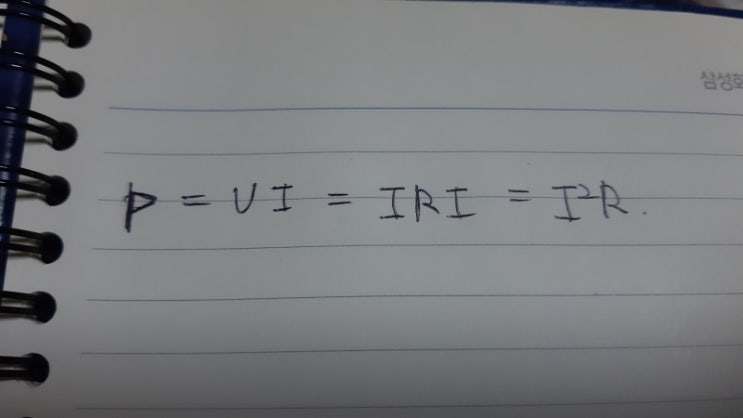 삼성화
P = VI = IRI = I²R.